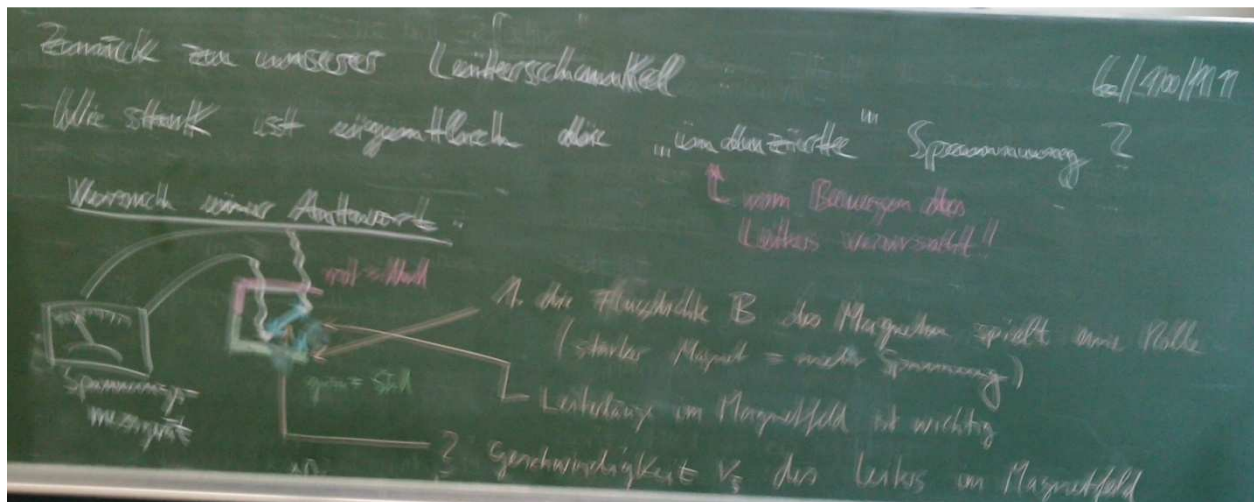 Zurück zu unserer Leiterschaukel
Wie stark ist eigentlich die "induzierte" Spannung?
vom Bewegen des
Leiters verursacht!!
Versuch einer Antwort:
rot = Nord
1. die Flussdichte B des Magneten spielt eine Rolle
(starker Magnet = mehr Spannung)
grün = Süd
Spannungs-
messgerät
Leiterlänge im Magnetfeld ist wichtig
? Geschwindigkeit vₛ des Leiters im Magnetfeld